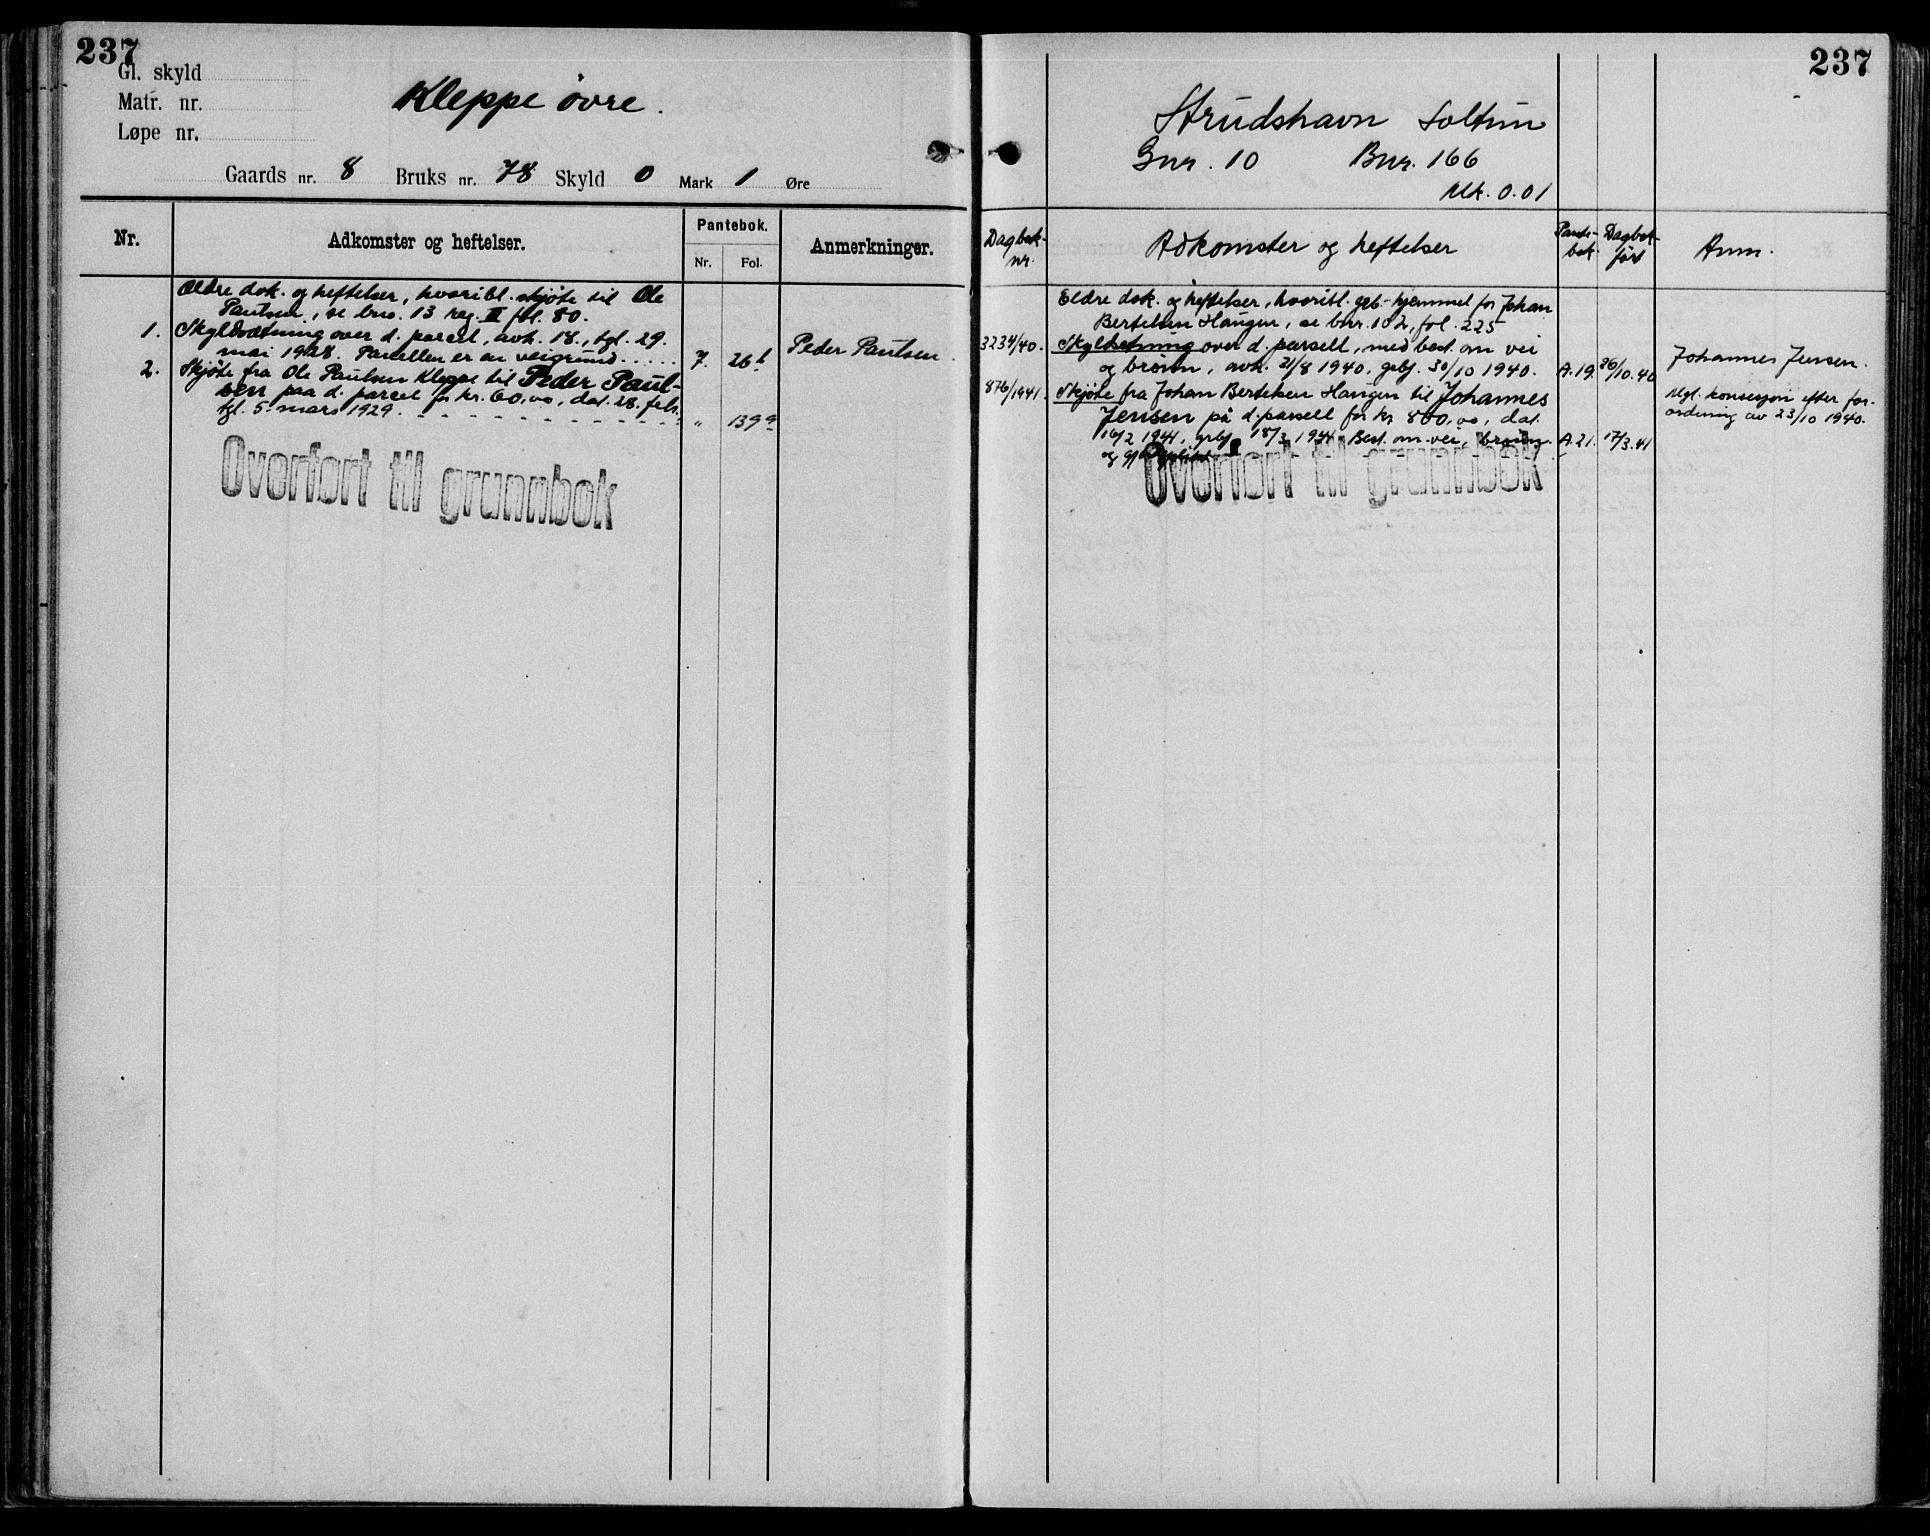 237
Gl. skyld
Matr. nr.
Løpe nr.
Kleppe øvre.
Gaards nr. 8 Bruks nr. 78 Skyld 0 Mark 1 Øre
Nr. Adkomster og heftelser. Pantebok. Anmerkninger.
Nr. Fol.
Ældre dok. og heftelser, hvoribl. skjøte til Ole
Paulsen, se bno. 13 reg. II fol. 80.
1. Skyldsætning over d. parcel, avh. 18., tgl. 29.
mai 1928. Parcellen er en veigrund..... 7. 26 b Peder Paulsen.
2. Skjøte fra Ole Paulsen Kleppe til Peder Paul-
sen paa d. parcel for kr. 60,00, dat. 28. febr.
tgl. 5. mars 1929. " 139 a
Overført til grunnbok
237
Strudshavn Soltun
Gnr. 10 Bnr. 166
Mk. 0.01
Dagbok-nr. Adkomster og heftelser Pante-bok. Dagbok-ført Anm.
Eldre dok. og heftelser, hvoribl. grb.-hjemmel for Johan
Bertelsen Haugen, se bnr. 102, fol. 225
3234/40. Skyldsetning over d. parsell, med best. om vei
og brønn, avh. 31/8 1940, grbf. 30/10 1940. A.19. 26/10.40 Johannes Jensen.
876/1941. Skjøte fra Johan Bertelsen Haugen til Johannes
Jensen på d. parsell for kr 800,00, dat.
16/2 1941, grbf. 18/3 1941. Best. om vei, brønn A.21. 17/3.41
og
Mgl. konsesjon efter for-
ordning av 23/10 1940.
Overført til grunnbok